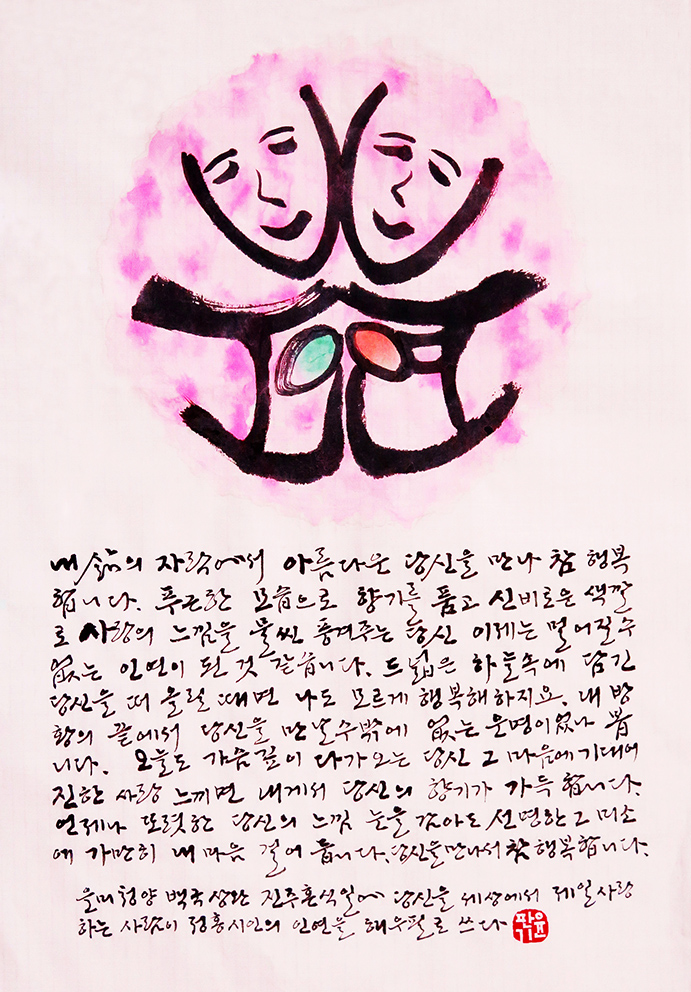 내 삶의 자락에서 아름다운 당신을 만나 참 행복
합니다. 푸근한 모습으로 향기를 품고 신비로운 색깔
로 사랑의 느낌을 물씬 풍겨주는 당신 이제는 멀어질수
없는 인연이 된 것 같습니다. 드넓은 하늘속에 담긴
당신을 떠 올릴 때면 나도 모르게 행복해 하지요. 내 방
황의 끝에서 당신을 만날수밖에 없는 운명이었나 봅
니다. 오늘도 가슴 깊이 다가오는 당신 그 마음에 기대어
진한 사랑 느끼면 내게서 당신의 향기가 가득 합니다.
언제나 또렷한 당신의 느낌 눈을 감아도 선명한 그 미소
에 가만히 내 마음 걸어 둡니다. 당신을 만나서 참 행복합니다.
을미 청양 백국상완 진주혼석일에 당신을 세상에서 제일 사랑
하는 사람이 정홍시인의 인연을 해우필로 쓰다